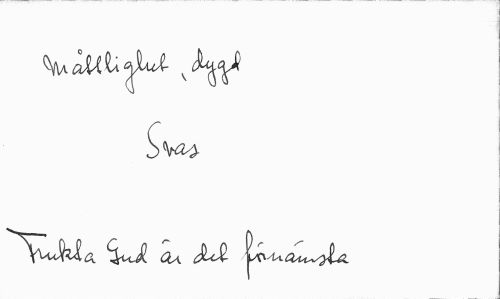 Måttlighet, dygd
Svas
Frukta Gud är det förnämsta